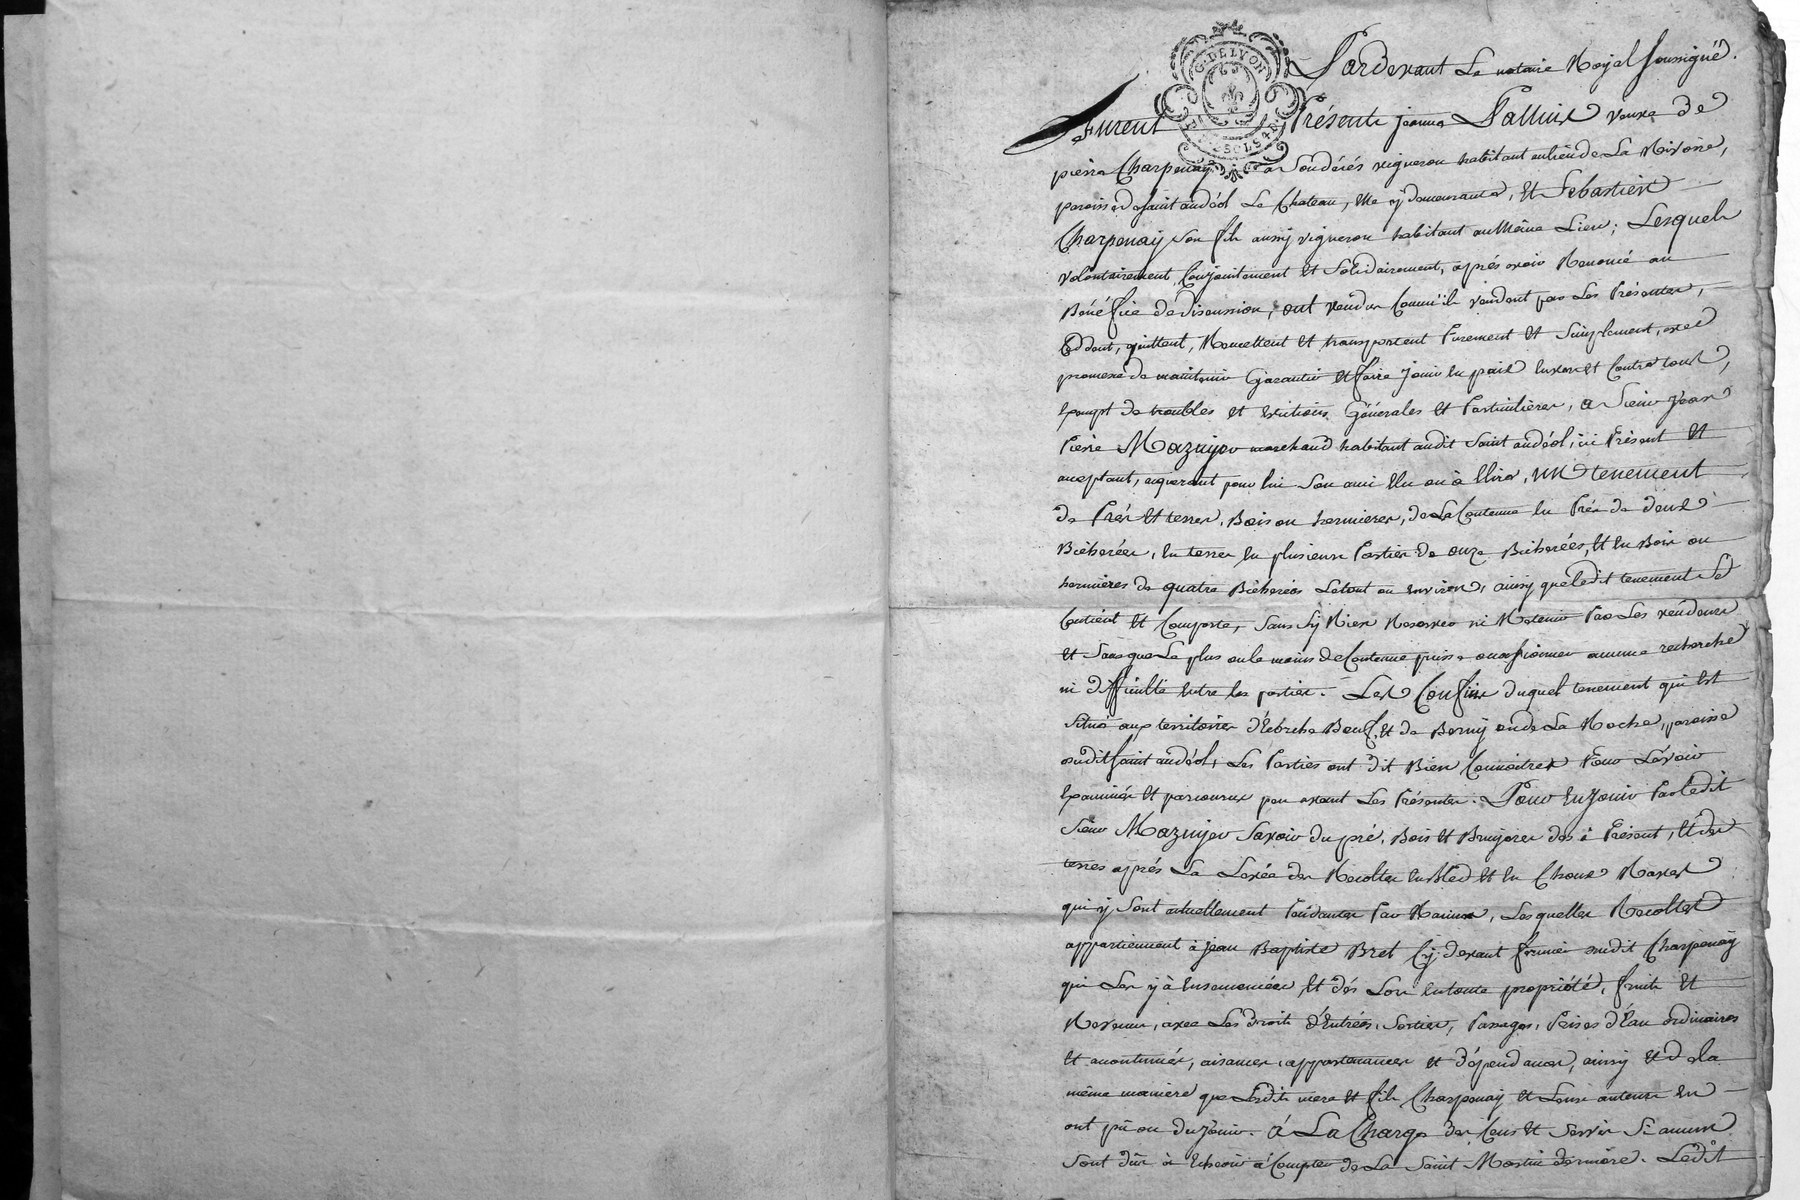 G. DE LYON
Pardevant Le notaire Royal soussigné.
furent Présents jeanne veuve de
pierre Charpenay vigneron habitant au lieu de La Rivoire,
paroisse de saint andéol Le Chateau, elle y demeurante, Et Sebastien
Charpenay son fils aussy vigneron habitant au Même Lieu; Lesquels
volontairement Conjointement et Solidairement, aprés avoir Renoncé au
Bénéfice de discussion, ont vendu Comm'ils vendent par Les Présentes,
Cèdent, quittent, Remettent et transportent Purement et Simplement, avec
promesse de maintenir Garantir et faire Jouir en paix Envers et Contre tous,
Exempt de troubles et évictions Générales et Particulières, a Sieur Jean
Pierre Mazuyer marchand habitant audit Saint andéol, ici Présent Et
acceptant, acquerant pour lui Son ami Elu ou à Elire, un tenement
de Prés et terres, Bois ou hermieres, de La Contenue En Prés de deux
Bicherées, En terres En plusieurs Parties de onze Bicherées, et En Bois ou
hermières de quatre Bicherées Le tout ou Environ, ainsy que Ledit tenement Se
Contient et Comporte, Sans s'y Rien Reserver ni Retenir Par Les vendeurs
et Sans que Le plus ou le moins de Contenue puisse occasionner aucune recherche
ni difficulté Entre les parties. Les Confins duquel tenement qui Est
Situé aux territoires d'Ebreche Beuf, et de Berny ou de La Roche, paroisse
dudit saint andéol, Les Parties ont dit Bien Connoitre Pour L'avoir
Examinée et parcourue peu avant Les Présentes. Pour En Jouir Par Ledit
Sieur Mazuyer Savoir du pré, Bois et Bruyeres des à Présent, et des
terres aprés La Levée des Recoltes En Bled et En Choux Raves
qui y Sont actuellement Pendantes Par Racines, Lesquelles Recoltes
appartiennent à jean Baptiste Bret Cy-devant fermier dudit Charpenay
qui Les y à Ensemencées et dés Lors En toute propriété, fruits et
Revenus, avec Les droits d'Entrées, Sorties, Passages, Prises d'Eau ordinaires
et accoutumés, aisances, appartenances et dépendances, ainsy et de la
même manière que Lesdits mere et fils Charpenay et Leurs auteurs En
ont pû ou du Jouir. à La Charge des Cens et Servis Si aucuns
Sont dûs à Echeoir à Compter de La Saint Martin derniere. Ledit